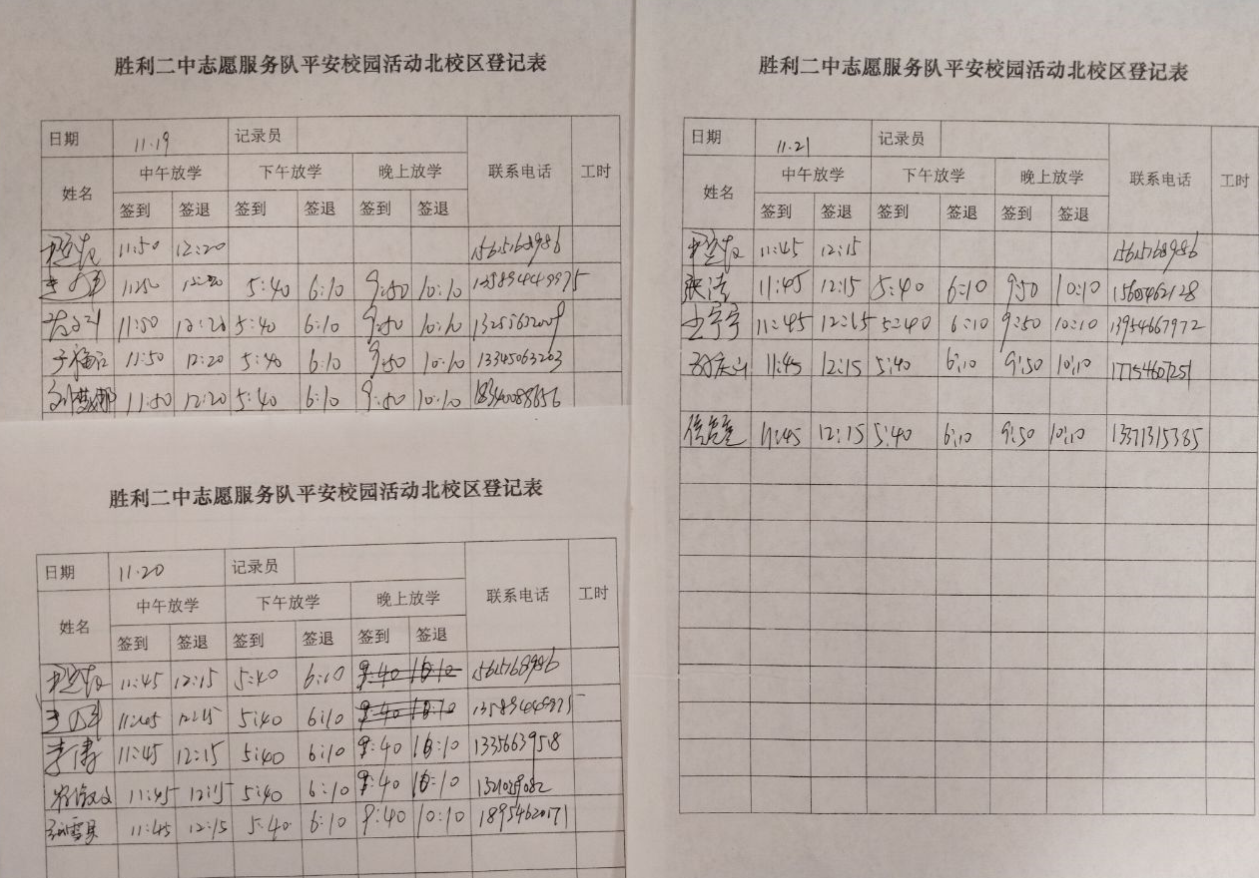 胜利二中志愿服务队平安校园活动北校区登记表
日期 11.19 记录员
姓名 中午放学 下午放学 晚上放学 联系电话 工时
签到 签退 签到 签退 签到 签退
11:50 12:20 15615168986
11:50 12:20 5:40 6:10 9:50 10:10
11:50 12:20 5:40 6:10 9:50 10:10
于福江 11:50 12:20 5:40 6:10 9:50 10:10 13345063203
刘梦娜 11:50 12:20 5:40 6:10 9:50 10:10 18340088656
胜利二中志愿服务队平安校园活动北校区登记表
日期 11.20 记录员
姓名 中午放学 下午放学 晚上放学 联系电话 工时
签到 签退 签到 签退 签到 签退
11:45 12:15 5:40 6:10 9:40 10:10 15615168986
11:45 12:15 5:40 6:10 9:40 10:10
李涛 11:45 12:15 5:40 6:10 9:40 10:10
11:45 12:15 5:40 6:10 9:40 10:10
11:45 12:15 5:40 6:10 9:40 10:10 18954620171
胜利二中志愿服务队平安校园活动北校区登记表
日期 11.21 记录员
姓名 中午放学 下午放学 晚上放学 联系电话 工时
签到 签退 签到 签退 签到 签退
11:45 12:15 15615168986
张涛 11:45 12:15 5:40 6:10 9:50 10:10
王宁宁 11:45 12:15 5:40 6:10 9:50 10:10 13954667972
11:45 12:15 5:40 6:10 9:50 10:10 17754607251
11:45 12:15 5:40 6:10 9:50 10:10 13371315385